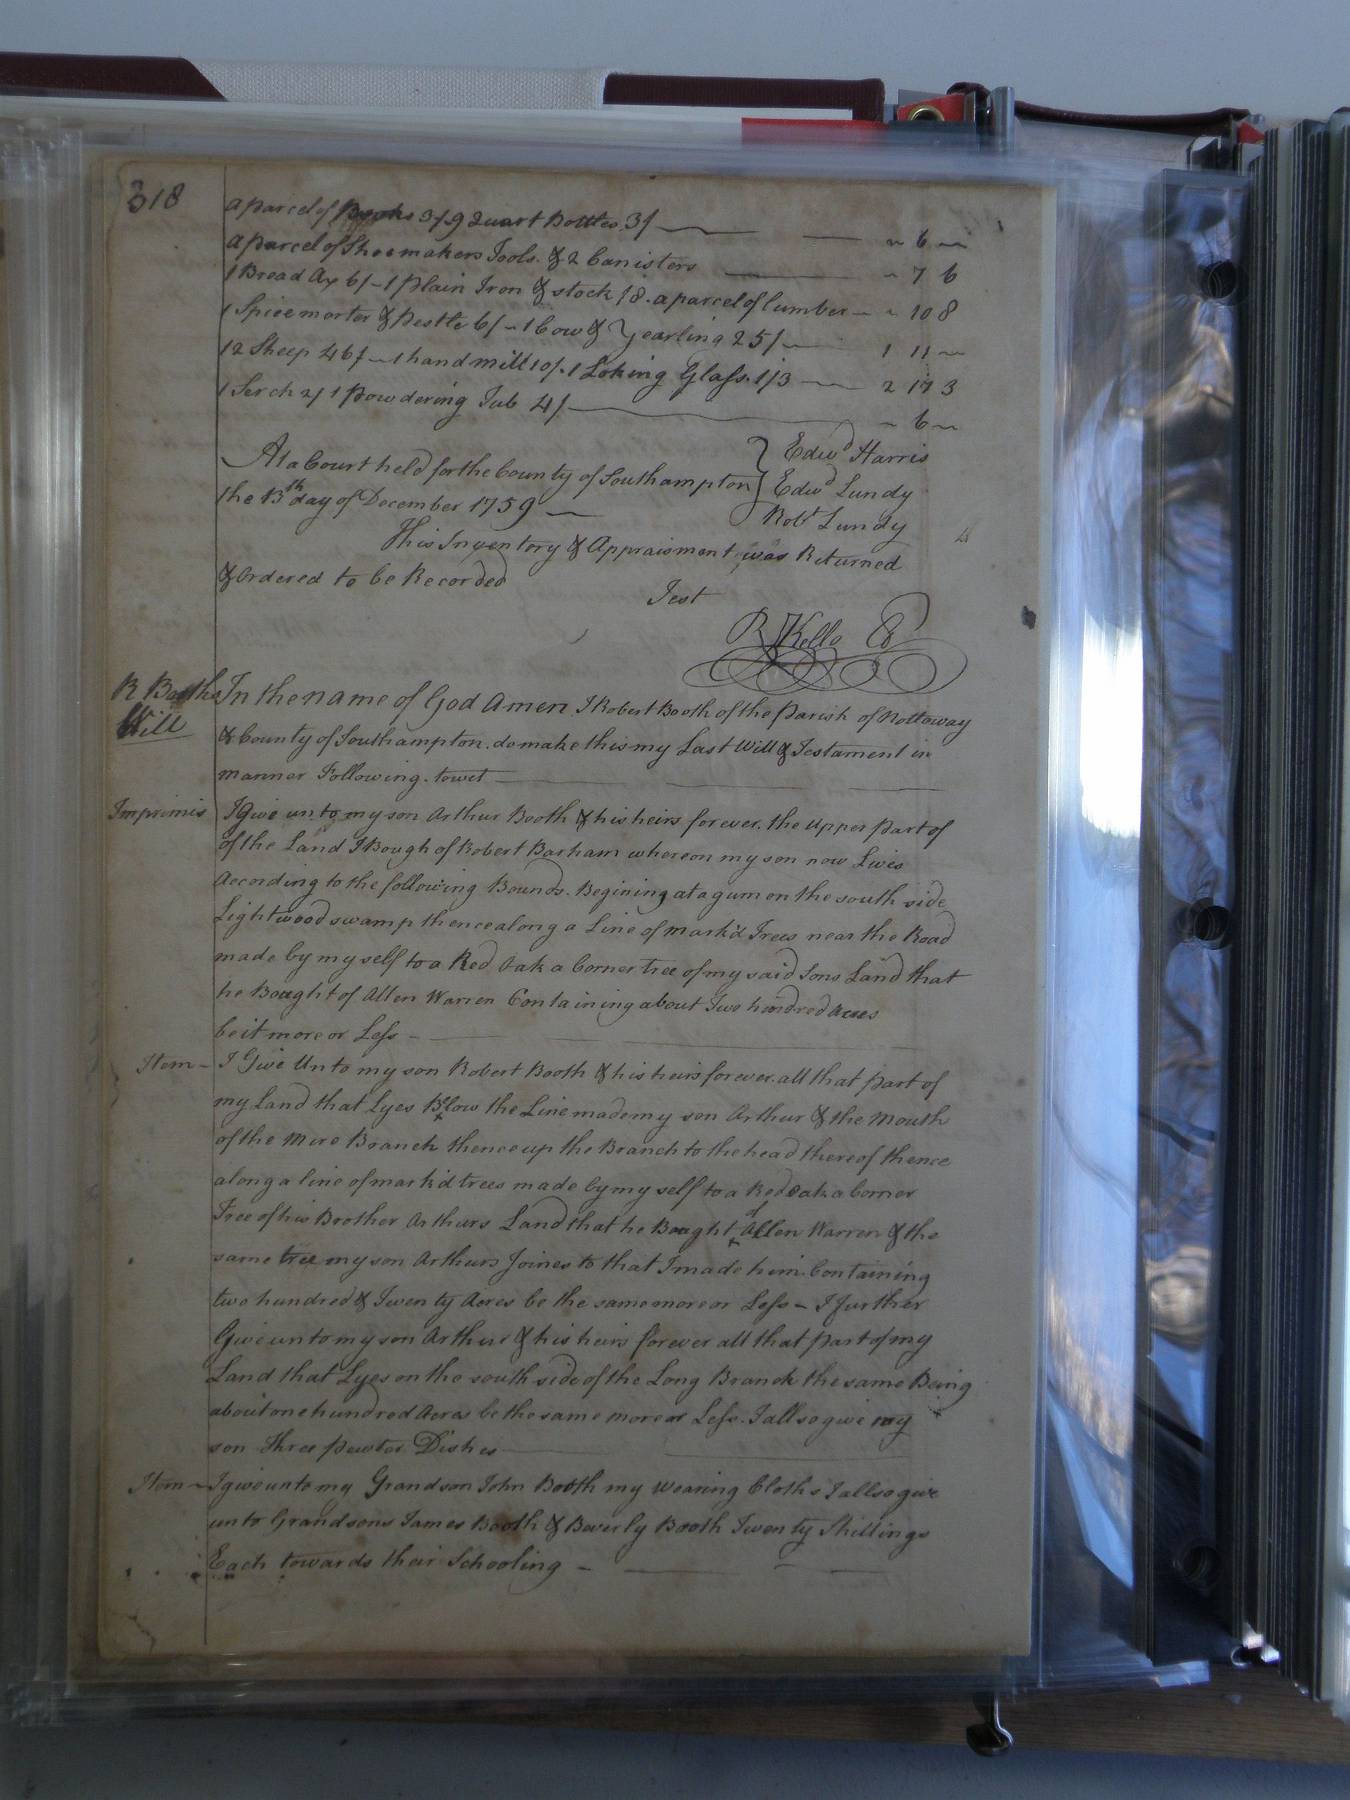 318
a parcel of Books 3/ 9 Quart Bottles 3/ — — " 6 "
a parcel of Shoemakers Tools & 2 Canisters — " 7 6
1 Broad Ax 6/ - 1 plain Iron & stock /8. a parcel of lumber — " 10 8
1 Spice morter & Pestle 6/ - 1 Cow & Yearling 25/ — 1 11 "
12 Sheep 46/ - 1 hand mill 10/. 1 Loking Glass. 1/3 — 2 17 3
1 Serch 2/ 1 Powdering Tub 4/ — " 6 "
At a Court held for the County of Southampton } Edwd Harris
the 13th day of December 1759 — Edwd Lundy
Robt Lundy
This Inventory & Appraisment was Returned
& Ordered to be Recorded
Test
R Kello Cl
R Booths
Will
In the name of God Amen I Robert Booth of the Parish of Nottoway
& County of Southampton. do make this my Last Will & Testament in
manner Following. towit —
Imprimis I Give unto my son Arthur Booth & his heirs forever. the upper part of
of the Land I Bough of Robert Barham whereon my son now Lives
According to the following Bounds. Begining at a gum on the south side
Lightwood swamp thence along a Line of mark'd Trees near the Road
made by my self to a Red Oak a Corner tree of my said Sons Land that
he Bought of Allen Warren Containing about Two hundred Acres
be it more or Less —
Item - I Give Unto my son Robert Booth & his heirs forever. all that part of
my Land that Lyes Below the Line made my son Arthur & the Mouth
of the Mire Branch thence up the Branch to the head thereof thence
along a line of mark'd trees made by my self to a Red Oak a Corner
Tree of his Brother Arthurs Land that he Bought of Allen Warren & the
same tree my son Arthurs Joines to that I made him. Containing
two hundred & Twenty Acres be the same more or Less - I further
Give unto my son Arthur & his heirs forever all that part of my
Land that Lyes on the south side of the Long Branch the same Being
about one hundred Acres be the same more or Less. I allso give my
son Three pewter Dishes —
Item - I give unto my Grandson John Booth my Wearing Cloths I allso give
unto Grandsons James Booth & Beverly Booth Twenty Shillings
Each towards their Schooling —